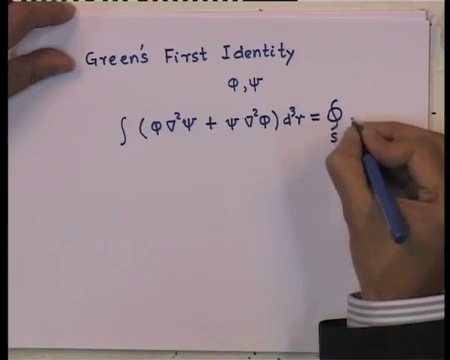 Green's First Identity
φ, ψ
∫ (φ∇²ψ + ψ∇²φ) d³r = ∮
S